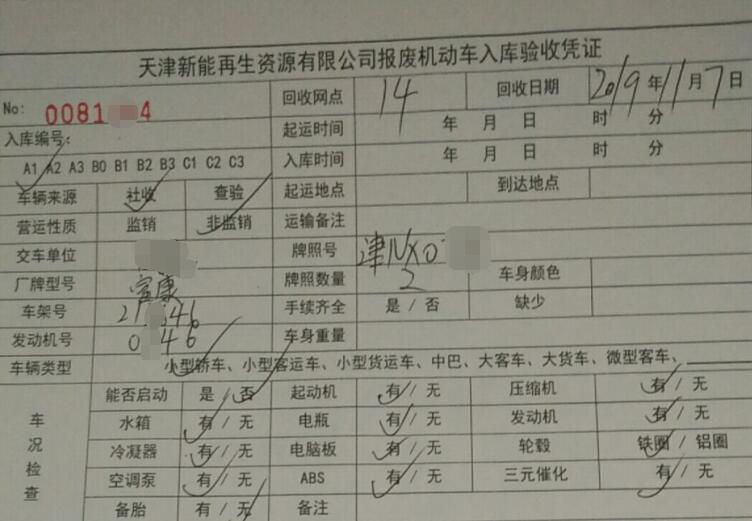 天津新能再生资源有限公司报废机动车入库验收凭证
No: 0081 4 回收网点 14 回收日期 2019年11月7日
入库编号: 起运时间 年 月 日 时 分
A1 A2 A3 B0 B1 B2 B3 C1 C2 C3 入库时间 年 月 日 时 分
车辆来源 社收 查验 起运地点 到达地点
营运性质 监销 非监销 运输备注
交车单位 牌照号 津NX0
厂牌型号 富康 牌照数量 2 车身颜色
车架号 2 346 手续齐全 是 / 否 缺少
发动机号 0 46 车身重量
车辆类型 小型轿车、小型客运车、小型货运车、中巴、大客车、大货车、微型客车、
车况检查 能否启动 是 / 否 起动机 有 / 无 压缩机 有 / 无
水箱 有 / 无 电瓶 有 / 无 发动机 有 / 无
冷凝器 有 / 无 电脑板 有 / 无 轮毂 铁圈 / 铝圈
空调泵 有 / 无 ABS 有 / 无 三元催化 有 / 无
备胎 有 / 无 备注